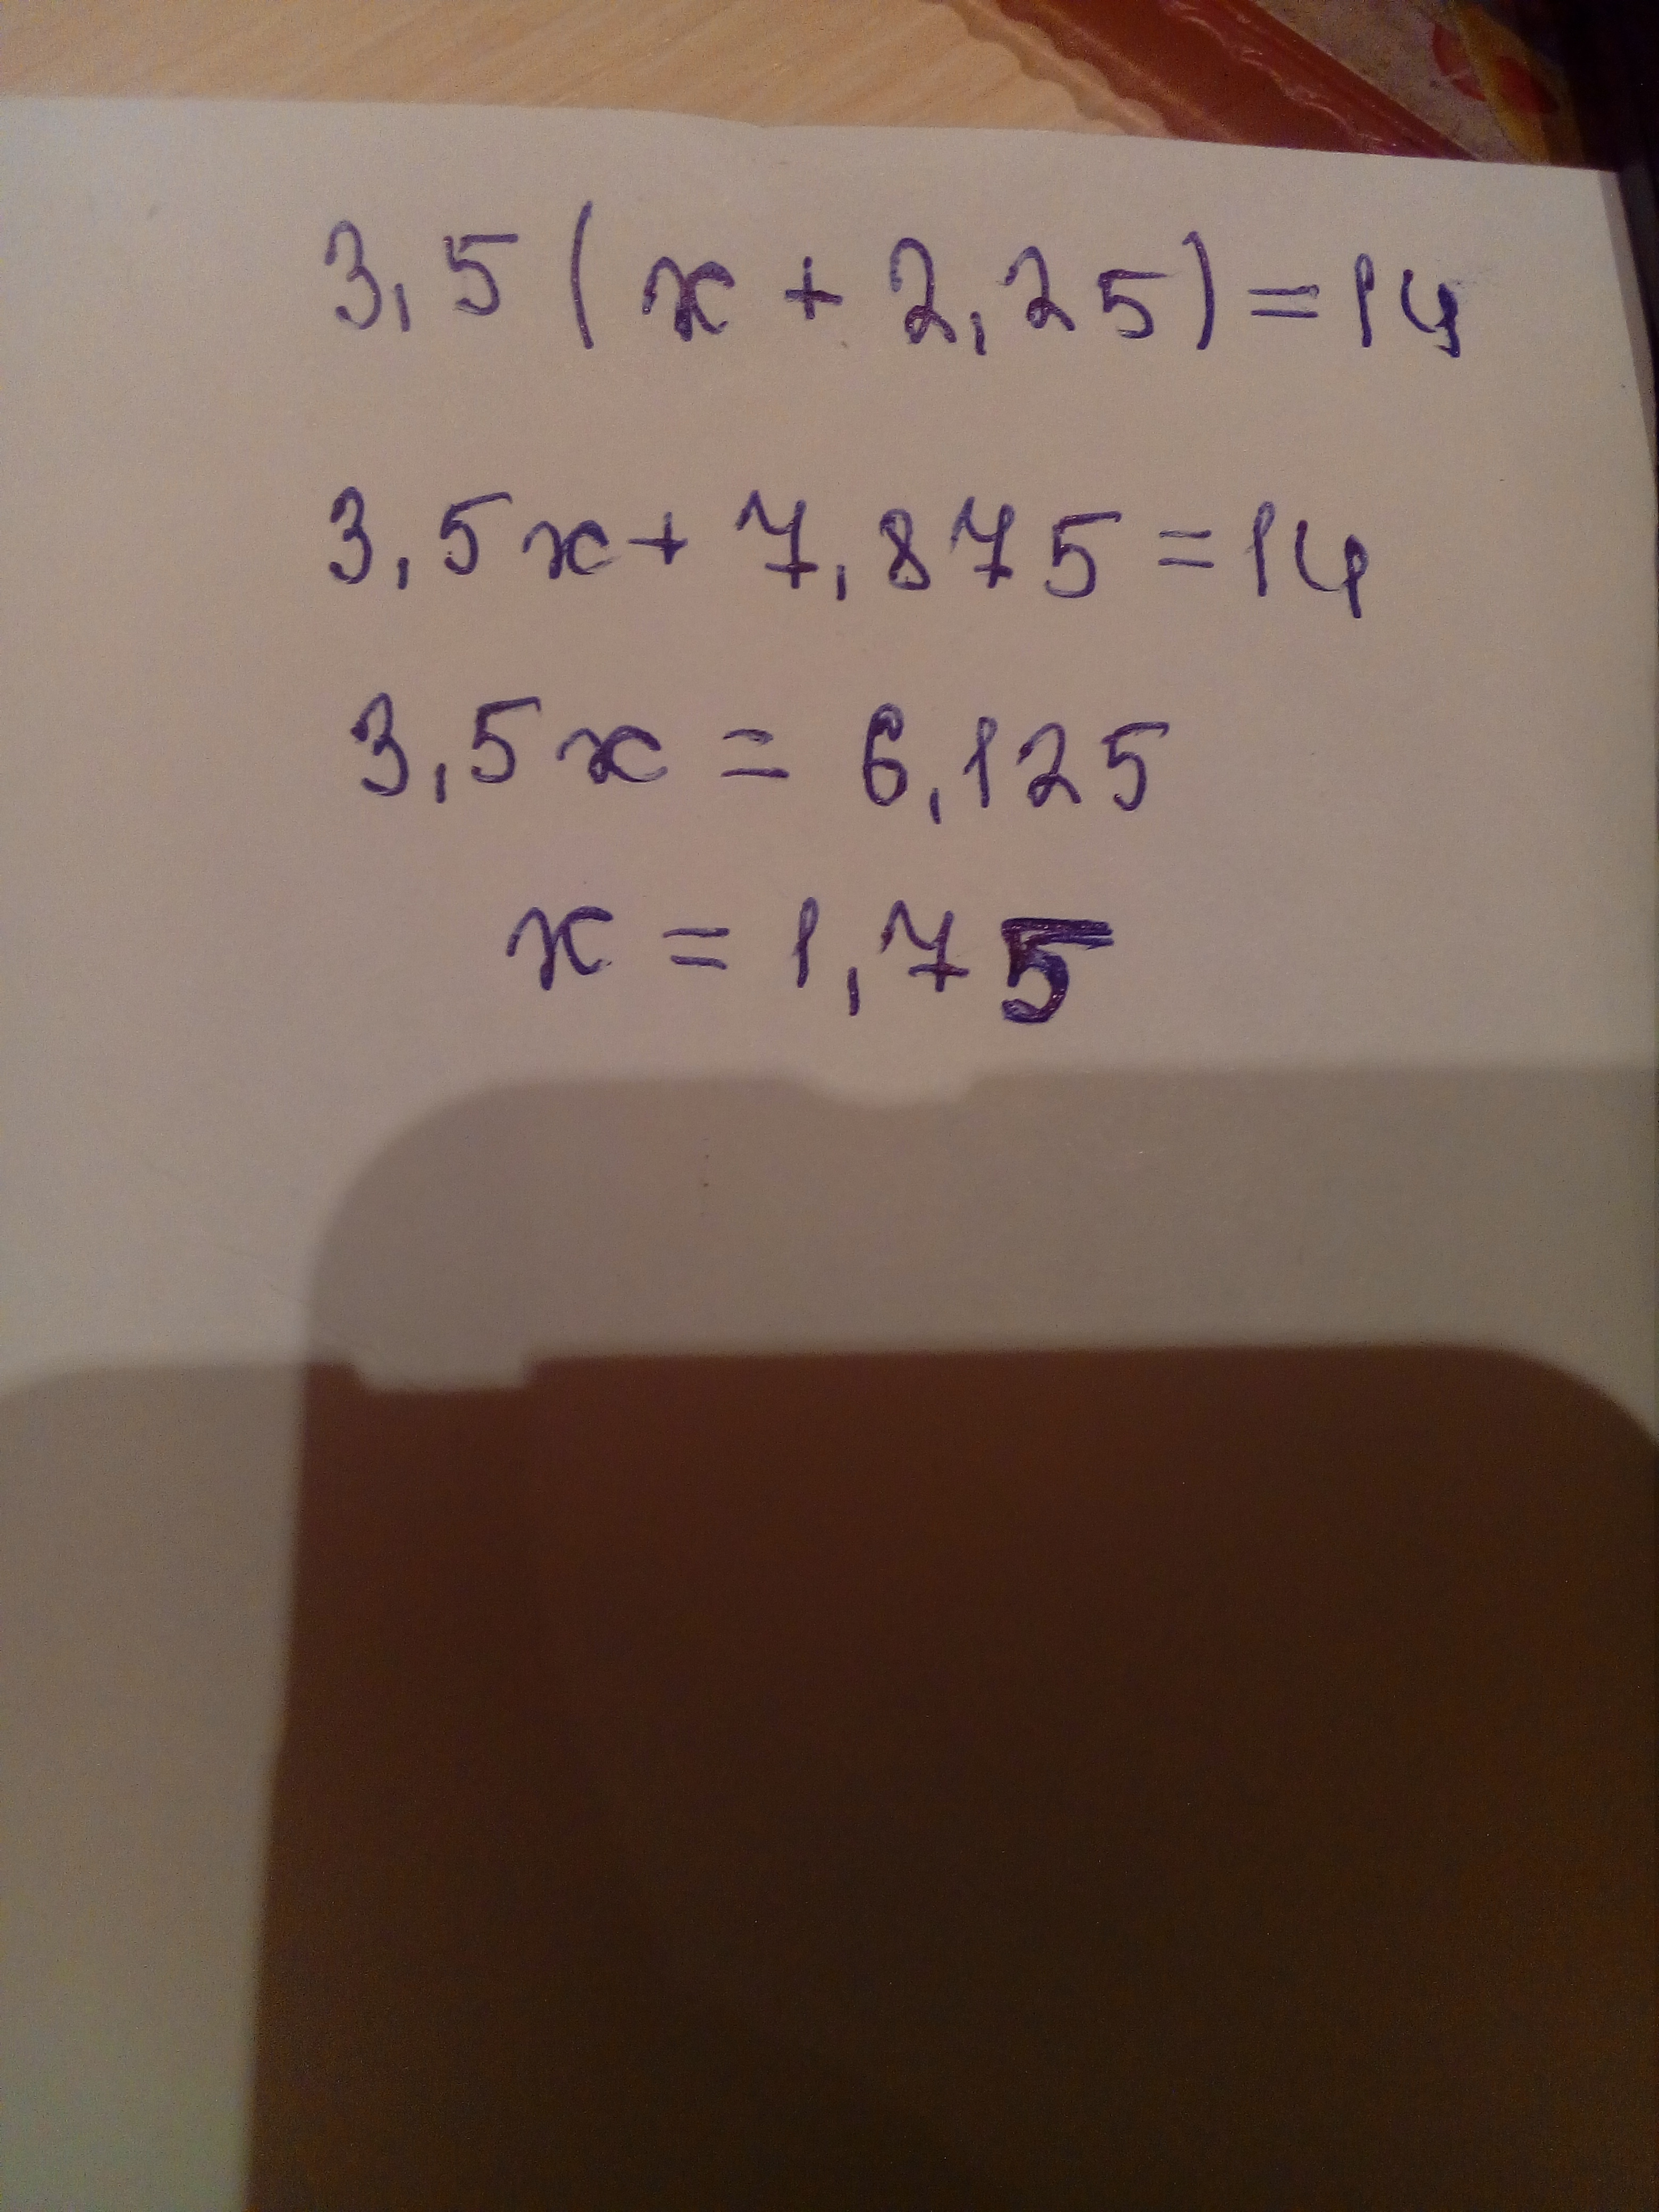 3,5(x+2,25)=14
3,5x+7,875=14
3,5x=6,125
x=1,75